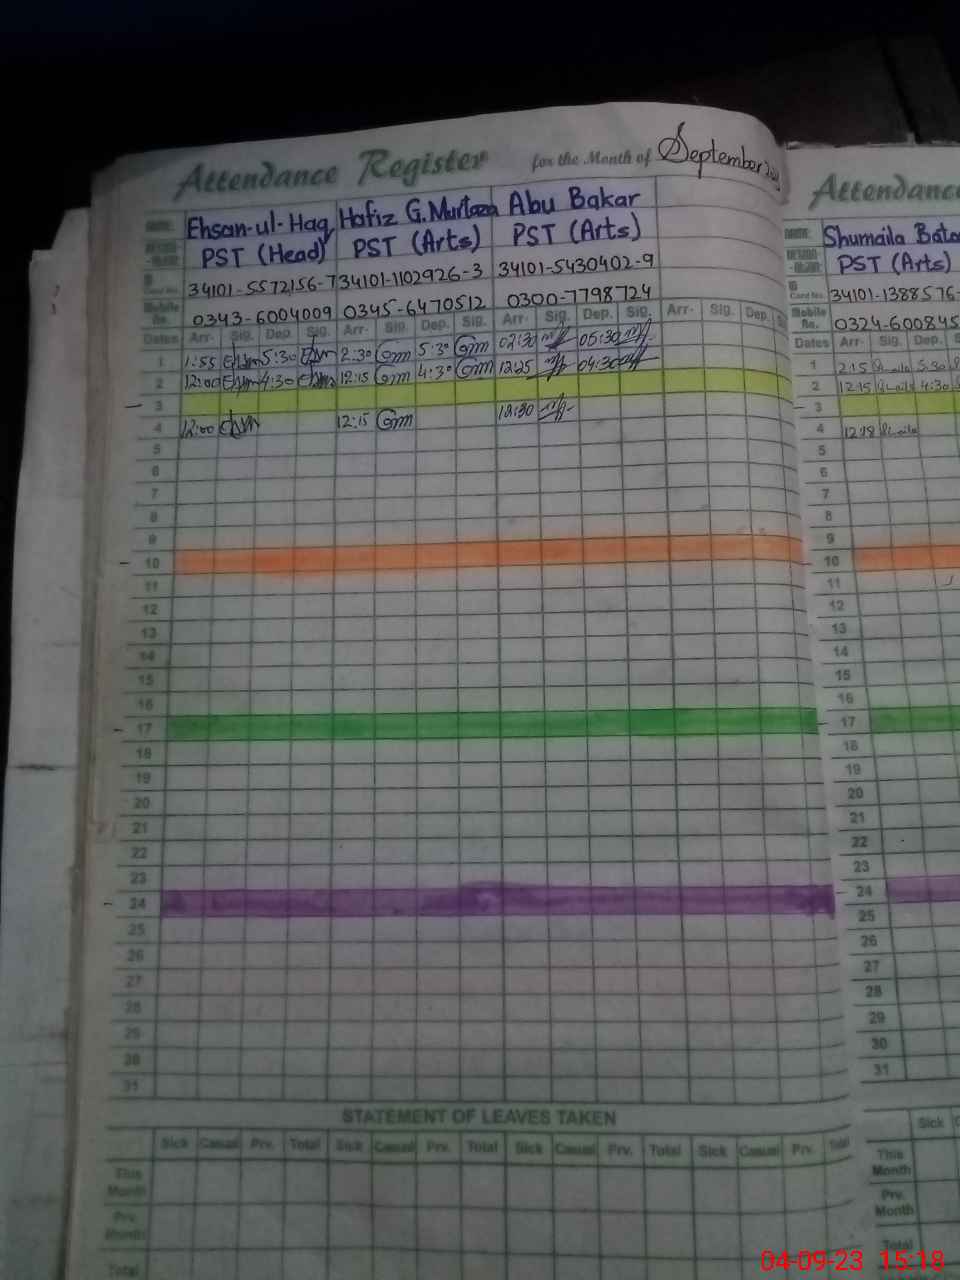 Attendance Register for the Month of September
NAME: Ehsan-ul-Haq Hafiz G. Murtaza Abu Bakar
PST (Head) PST (Arts) PST (Arts)
Card No. 34101-5572156-7 34101-1102926-3 34101-5430402-9
Mobile No. 0343-6004009 0345-6470512 0300-7798724
Dates Arr- Sig. Dep. Sig. Arr- Sig. Dep. Sig. Arr- Sig. Dep. Sig. Arr- Sig. Dep.
1 1:55 5:30 2:30 5:30 02:30 05:30
2 12:00 4:30 12:15 4:30 12:25 04:30
3
4 12:00 12:15 12:30
5
6
7
8
9
10
11
12
13
14
15
16
17
18
19
20
21
22
23
24
25
26
27
28
29
30
31
STATEMENT OF LEAVES TAKEN
Sick Casual Prv. Total Sick Casual Prv. Total Sick Casual Prv. Total Sick Casual Prv. Total
This Month
Prv. Month
Total
Attendance
NAME: Shumaila
PST (Arts)
Card No. 34101-1388576-
Mobile No. 0324-600845
Dates Arr- Sig. Dep.
1 2:15 5:30
2 12:15 4:30
3
4 12:18
5
6
7
8
9
10
11
12
13
14
15
16
17
18
19
20
21
22
23
24
25
26
27
28
29
30
31
Sick
This Month
Prv. Month
Total
04-09-23 15:18